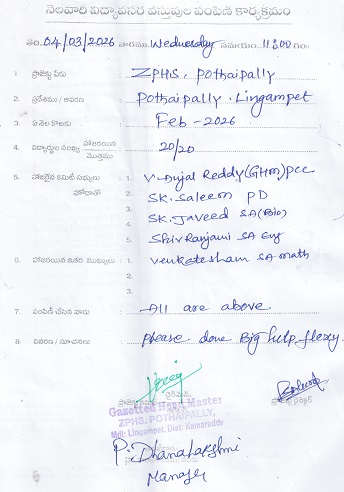 నెలవారి విద్యావసర వస్తువుల పంపిణి కార్యక్రమం
తేది. 04/03/2026 వారము Wednesday సమయం. 11:00 గం॥
1. ప్రాజెక్టు పేరు : ZPHS, Pothaipally
2. ప్రదేశము / ఆవరణ : Pothaipally. Lingampet
3. ఏ నెల కొఱకు : Feb - 2026
4. విద్యార్థుల సంఖ్య హాజరయిన : 20/20
మొత్తము
5. హాజరైన కమిటీ సభ్యులు : 1. V. Dyal Reddy (GHM) PCC
హోదాతో 2. SK. Saleem PD
3. SK. Javeed SA (Bio)
4. SA Eng
5.
6. హాజరయిన ఇతర ముఖ్యులు : 1. Venketesham SA math
2.
7. పంపిణి చేసిన వారు : All are above
8. వివరణ / సూచనలు : Please done Big help flexy.
Gazetted Head Master
ZPHS, POTHAIPALLY,
Mdl: Lingampet, Dist: Kamareddy
P. Dhanalakshmi
Manager